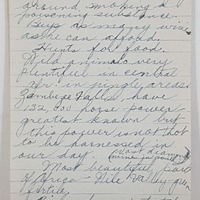 around smoking &
poisoning substance.
Buys as many wives
as he can afford.
Hunts for food.
Wild animals very
plentiful in central
Afr. in jungle areas
Zambezi Falls have
132,000 horse power
greatest known but
this power is not hot
to be harnessed in
our day.
Most beautiful part
of Africa - Nile Valley green
fertile.